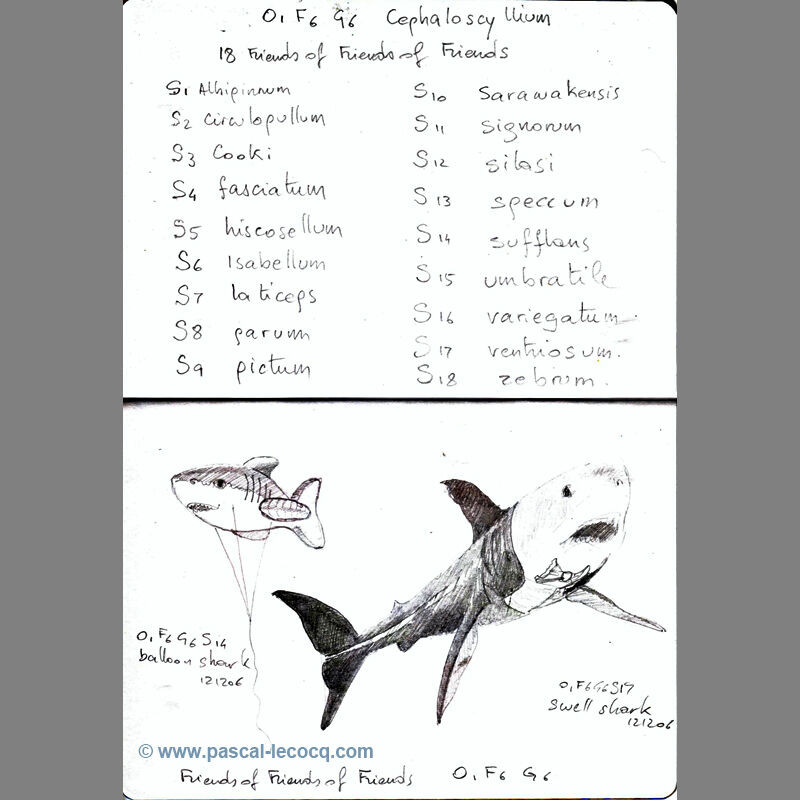 O1 F6 G6 Cephaloscyllium
18 Friends of Friends of Friends
S1 Albipinnum
S2 circulopullum
S3 Cooki
S4 fasciatum
S5 hiscosellum
S6 Isabellum
S7 laticeps
S8 parum
S9 pictum
S10 Sarawakensis
S11 signorum
S12 silasi
S13 speccum
S14 sufflans
S15 umbratile
S16 variegatum.
S17 ventriosum.
S18 zebrum.
O1 F6 G6 S14
balloon shark
121206
O1 F6 G6 S17
swell shark
121206
© www.pascal-lecocq.com
Friends of Friends of Friends O1 F6 G6